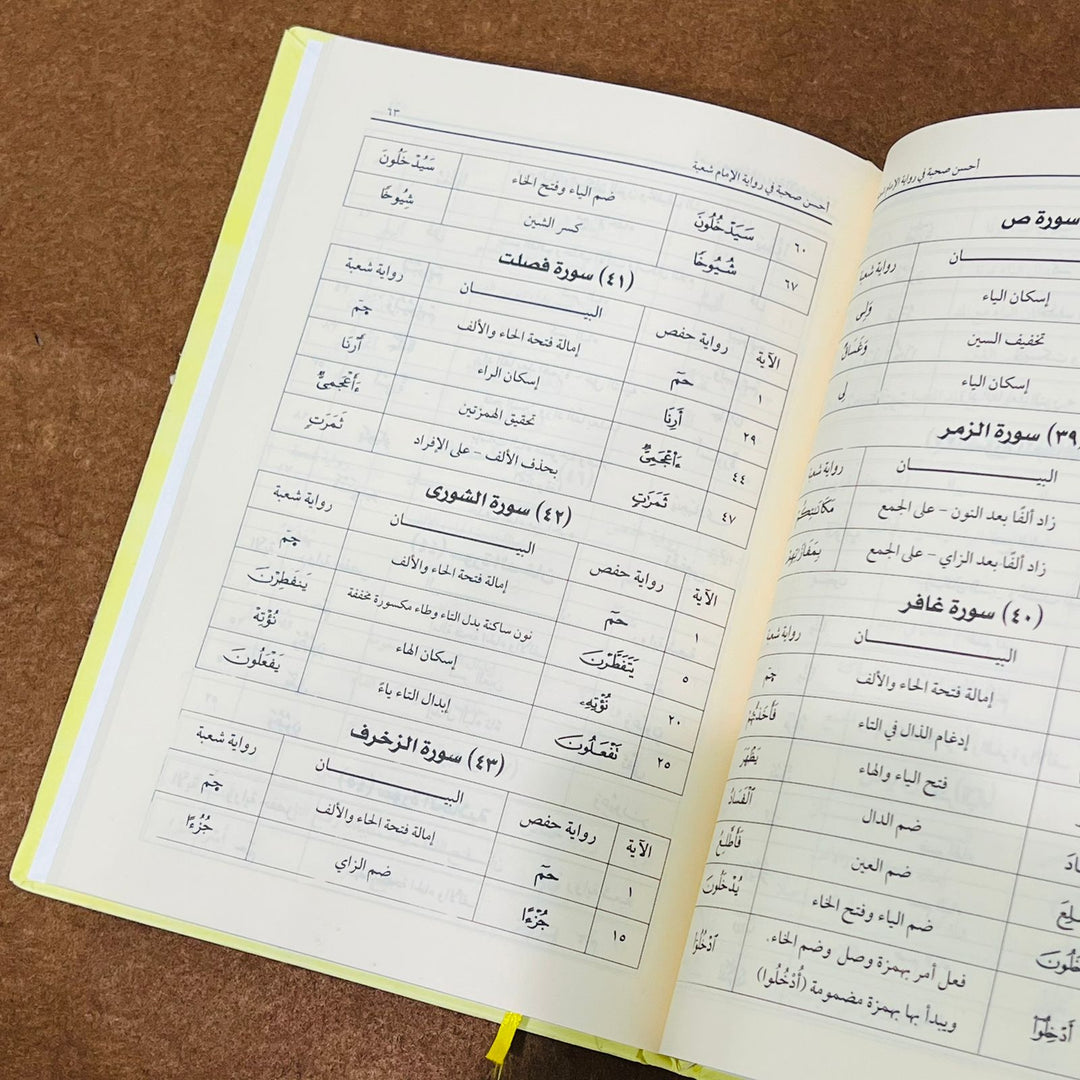 أحسن صحبة في رواية الإمام شعبة
سورة ص
البيـــــــان رواية شعبة
إسكان الياء وَلِى
تخفيف السين وَغَسَاقٌ
إسكان الياء لِى
(٣٩) سورة الزمر
البيـــــــان رواية
زاد ألفًا بعد النون – على الجمع
زاد ألفًا بعد الزاي – على الجمع
(٤٠) سورة غافر
البيـــــــان رواية
إمالة فتحة الحاء والألف حمٓ
إدغام الذال في التاء فَأَخَذتُّهُمْ
فتح الياء والهاء يَظْهَرَ
ضم الدال ٱلْفَسَادُ
ضم العين فَأَطَّلِعُ
ضم الياء وفتح الخاء يُدْخَلُونَ
أَدْخِلُوٓا۟ فعل أمر بهمزة وصل وضم الخاء. ٱدْخُلُوٓا۟
ويبدأ بها بهمزة مضمومة (أُدْخُلُوا)
أحسن صحبة في رواية الإمام شعبة ٦٣
٦٠ سَيَدْخُلُونَ ضم الياء وفتح الخاء سَيُدْخَلُونَ
٦٧ شُيُوخًا كسر الشين شِيُوخًا
(٤١) سورة فصلت
الآية رواية حفص البيـــــــان رواية شعبة
١ حمٓ إمالة فتحة الحاء والألف حمٓ
٢٩ أَرِنَا إسكان الراء أَرْنَا
٤٤ ءَا۬عْجَمِىٌّ تحقيق الهمزتين ءَأَعْجَمِىٌّ
٤٧ ثَمَرَٰتٍ بحذف الألف – على الإفراد ثَمَرَتٍ
(٤٢) سورة الشورى
الآية رواية حفص البيـــــــان رواية شعبة
١ حمٓ إمالة فتحة الحاء والألف حمٓ
٥ يَتَفَطَّرْنَ نون ساكنة بدل التاء وطاء مكسورة مخففة يَنفَطِرْنَ
٢٠ نُؤْتِهِۦ إسكان الهاء نُؤْتِهْ
٢٥ تَفْعَلُونَ إبدال التاء ياءً يَفْعَلُونَ
(٤٣) سورة الزخرف
الآية رواية حفص البيـــــــان رواية شعبة
١ حمٓ إمالة فتحة الحاء والألف حمٓ
١٥ جُزْءًا ضم الزاي جُزُءًا